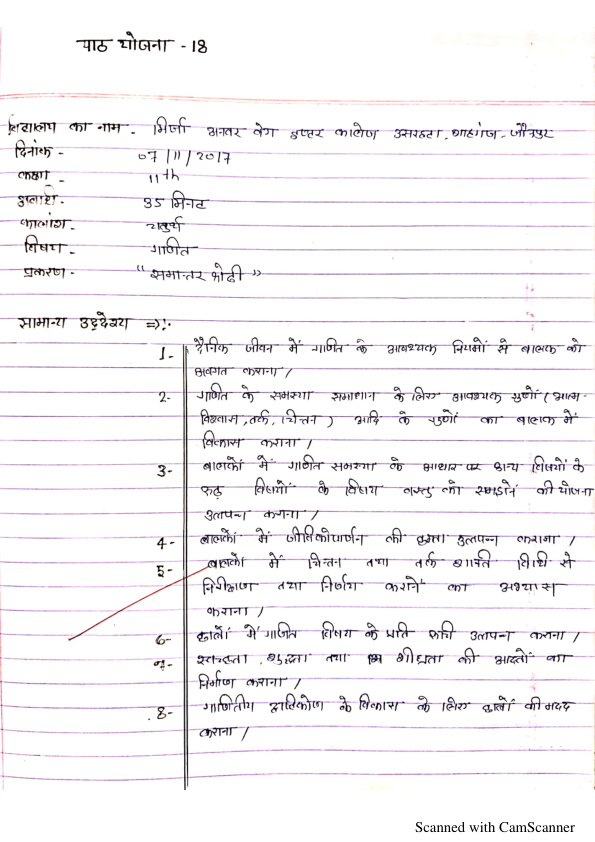 पाठ योजना - 18
विद्यालय का नाम - मिर्जा अनवर बेग इण्टर कालेज उसरहटा, शाहगंज - जौनपुर
दिनांक - 07/11/2017
कक्षा - 11th
अवधि - 35 मिनट
कालांश - चतुर्थ
विषय - गणित
प्रकरण - "समान्तर श्रेढी"
सामान्य उद्देश्य ⇒:-
1- दैनिक जीवन में गणित के आवश्यक नियमों से बालक को
अवगत कराना /
2- गणित के समस्या समाधान के लिए आवश्यक गुणों (आत्म-
विश्वास, तर्क, चिन्तन) आदि के गुणों का बालक में
विकास कराना /
3- बालकों में गणित समस्या के आधार पर अन्य विषयों के
विषयों के विषय वस्तु को समझने की योजना
उत्पन्न कराना /
4- बालकों में जीविकोपार्जन की क्षमता उत्पन्न कराना /
5- बालकों में चिन्तन तथा तर्क शक्ति विधि से
निरीक्षण तथा निर्णय कराने का अभ्यास
कराना /
6- छात्रों में गणित विषय के प्रति रूचि उत्पन्न कराना /
7- स्वच्छता, शुद्धता तथा शीघ्रता की आदतों का
निर्माण कराना /
8- गणितीय दृष्टिकोण के विकास के लिए छात्रों की मदद
कराना /
Scanned with CamScanner